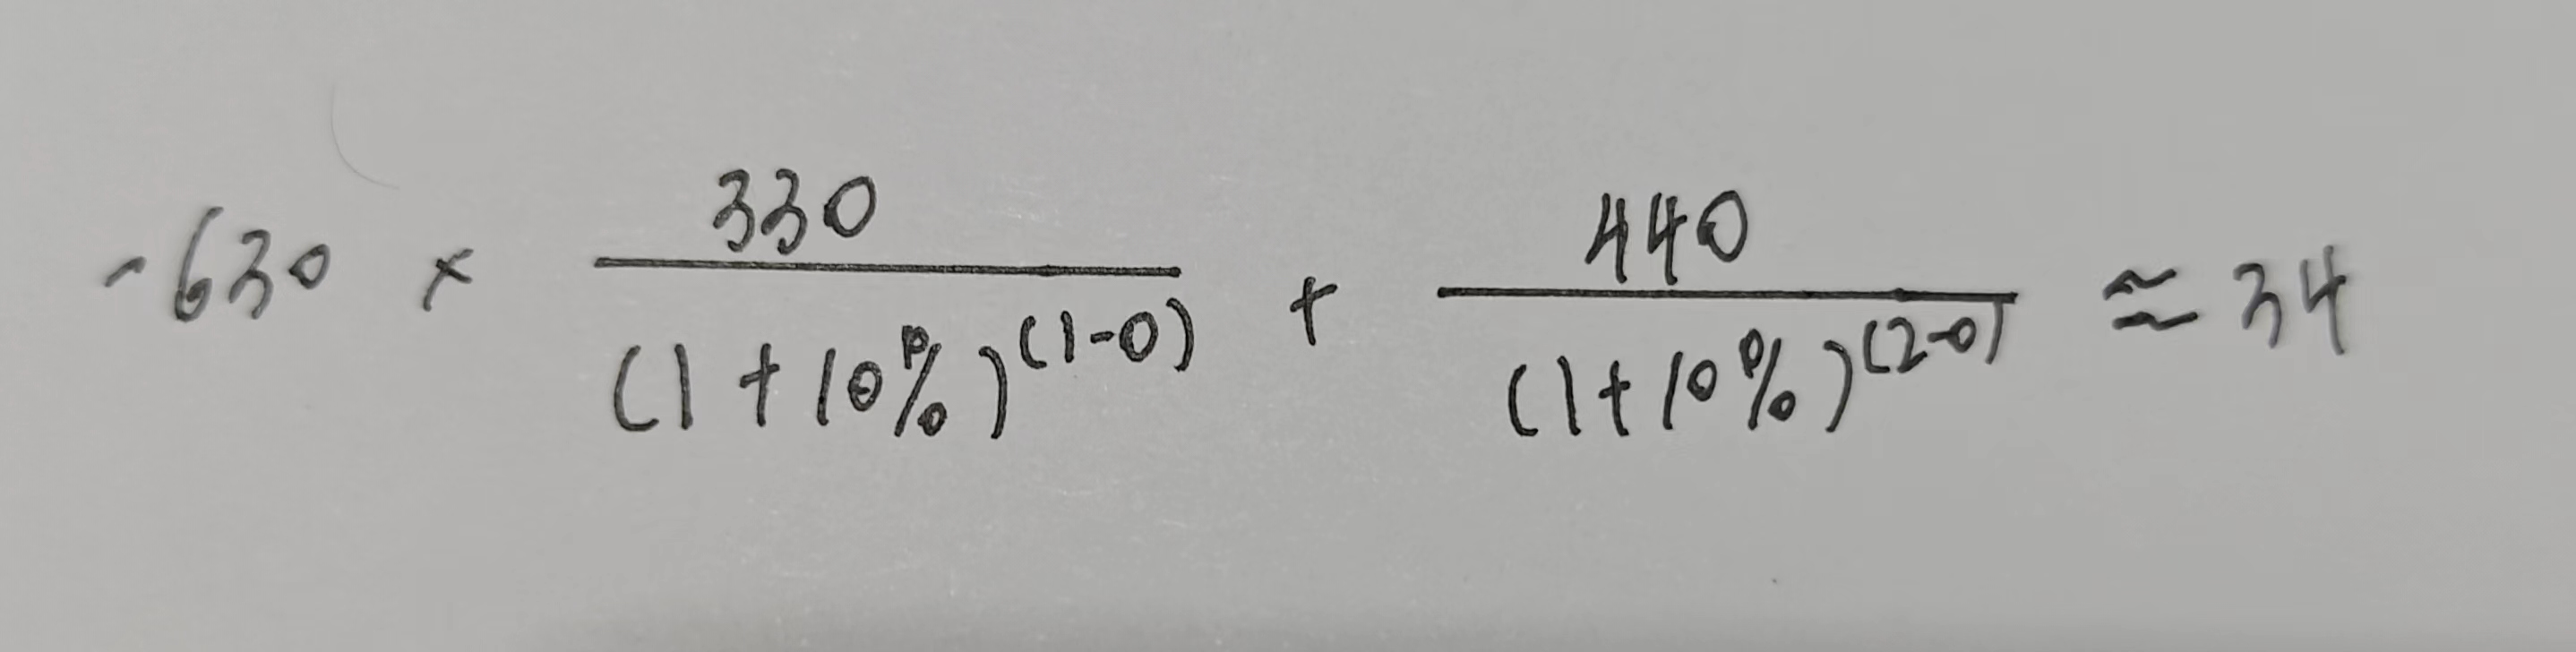 -630 × 330/(1+10%)^(1-0) + 440/(1+10%)^(2-0) ≈ 34